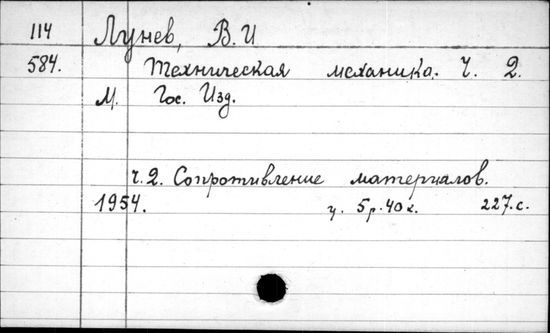 114 Лунев, В.И
584. Техническая механика. Ч. 2.
М. Гос. Изд.
ч.2. Сопротивление материалов.
1954. ц. 5р.40к. 227.с.